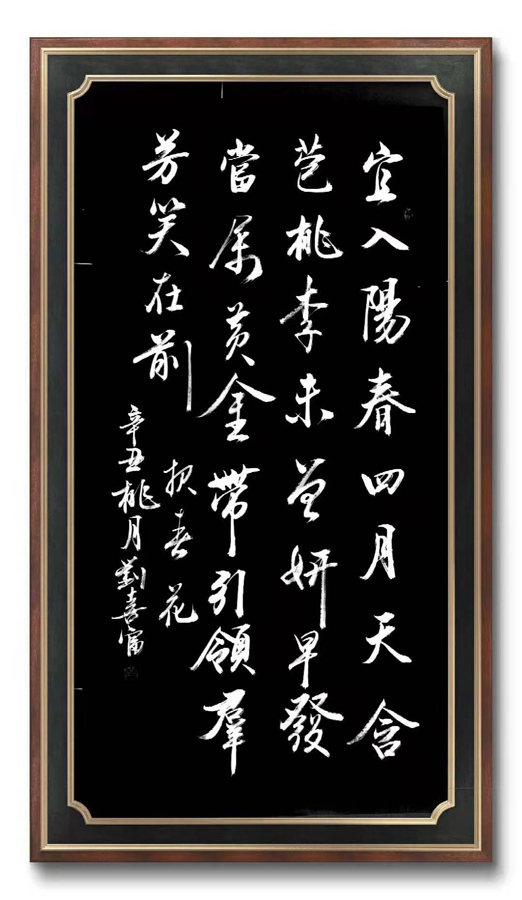 宜入陽春四月天含
芭桃李未曾妍早發
當屬黃金帶引領羣
芳笑在前
報春花
辛丑桃月劉喜富